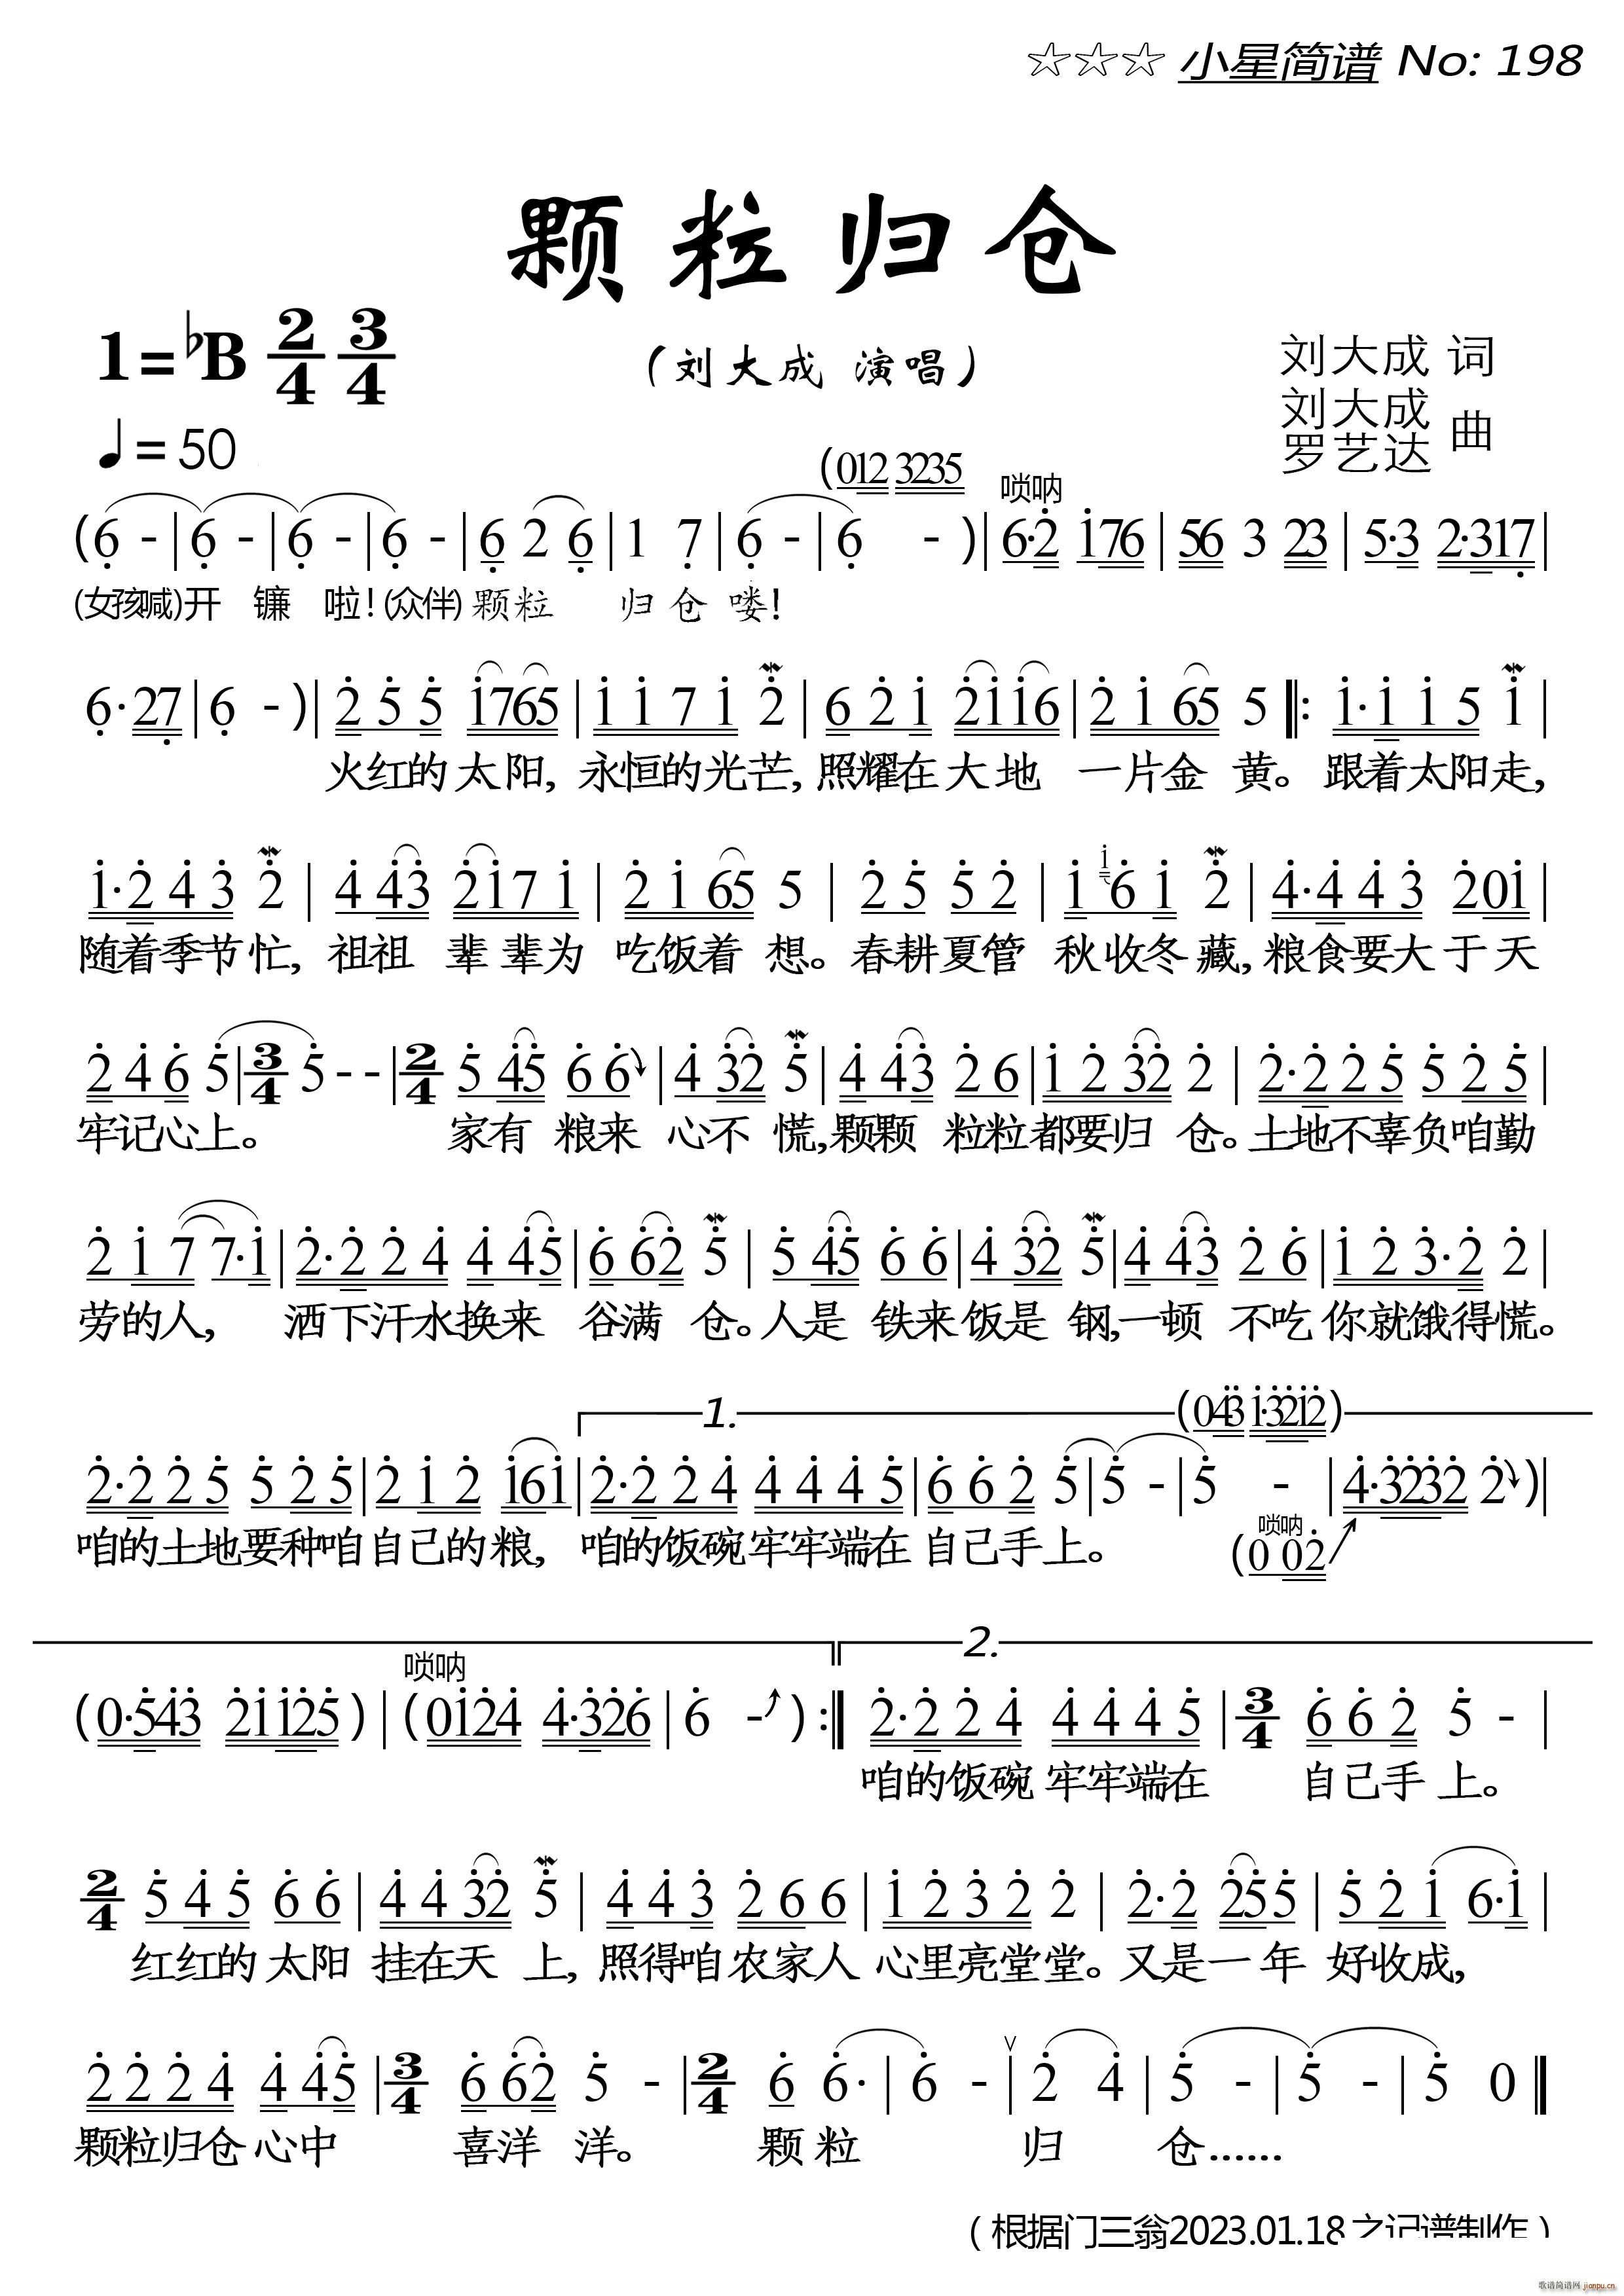 ☆☆☆ 小星简谱 No: 198
颗粒归仓
1=♭B 2/4 3/4
(刘大成 演唱)
刘大成 词
刘大成 罗艺达 曲
♩=50
(012 3235
唢呐
(6 - | 6 - | 6 - | 6 - | 6 2 6 | 1 7 | 6 - | 6 - )| 6·2 176 | 56 3 23 | 5·3 2·317 |
(女孩喊)开 镰 啦!(众伴)颗粒 归仓 喽!
6·27 | 6 - )| 2 5 5 1765 | 1 1 7 1 2 | 6 2 1 2116 | 2 1 65 5 ‖: 1·1 1 5 1 |
火红的太阳,永恒的光芒,照耀在大地 一片金 黄。跟着太阳走,
1·2 4 3 2 | 4 43 217 1 | 2 1 65 5 | 2 5 5 2 | 1 i6 1 2 | 4·4 4 3 201 |
随着季节忙,祖祖 辈辈为 吃饭着 想。春耕夏管 秋收冬藏,粮食要大于天
2 4 6 5 | 3/4 5 - - | 2/4 5 45 6 6 | 4 32 5 | 4 43 2 6 | 1 2 32 2 | 2·2 2 5 5 2 5 |
牢记心上。 家有 粮来 心不 慌,颗颗 粒粒都要归 仓。土地不辜负咱勤
2 1 7 7·1 | 2·2 2 4 4 45 | 6 62 5 | 5 45 6 6 | 4 32 5 | 4 43 2 6 | 1 2 3·2 2 |
劳的人, 洒下汗水换来 谷满 仓。人是 铁来饭是 钢,一顿 不吃你就饿得慌。
1. (043 1·3212)
2·2 2 5 5 2 5 | 2 1 2 161 | 2·2 2 4 4 4 4 5 | 6 6 2 5 | 5 - | 5 - | 4·3232 2 )|
咱的土地要种咱自己的粮, 咱的饭碗牢牢端在自己手上。
唢呐
(0 02
2.
唢呐
(0·543 21125) | (0124 4·326 | 6 - ) :‖ 2·2 2 4 4 4 4 5 | 3/4 6 6 2 5 - |
咱的饭碗牢牢端在 自己手上。
2/4 5 4 5 6 6 | 4 4 32 5 | 4 4 3 2 6 6 | 1 2 3 2 2 | 2·2 255 | 5 2 1 6·1 |
红红的太阳 挂在天 上,照得咱农家人 心里亮堂堂。又是一年 好收成,
2 2 2 4 4 45 | 3/4 6 62 5 - | 2/4 6 6· | 6 - | 2 4 | 5 - | 5 - | 5 0 ‖
颗粒归仓心中 喜洋 洋。 颗粒 归 仓……
(根据门三翁2023.01.18之记谱制作)
歌谱简谱网 jianpu.cn